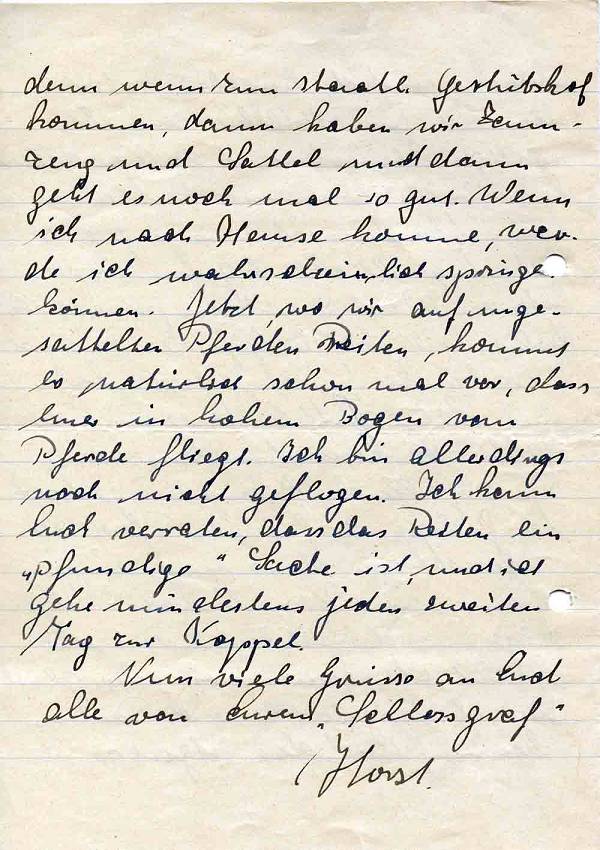 denn wenn zum staatl. Gestütshof
kommen, dann haben wir Zaum-
zeug und Sattel und dann
geht es noch mal so gut. Wenn
ich nach Hause komme, wer-
de ich wahrscheinlich springen
können. Jetzt, wo wir auf unge-
sattelten Pferden Reiten, kommt
es natürlich schon mal vor, dass
einer in hohem Bogen vom
Pferde fliegt. Ich bin allerdings
noch nicht geflogen. Ich kann
Euch verraten, dass das Reiten ein
„pfundige" Sache ist, und ich
gehe mindestens jeden zweiten
Tag zur Koppel.
Nun viele Grüsse an Euch
alle von Eurem
Horst.